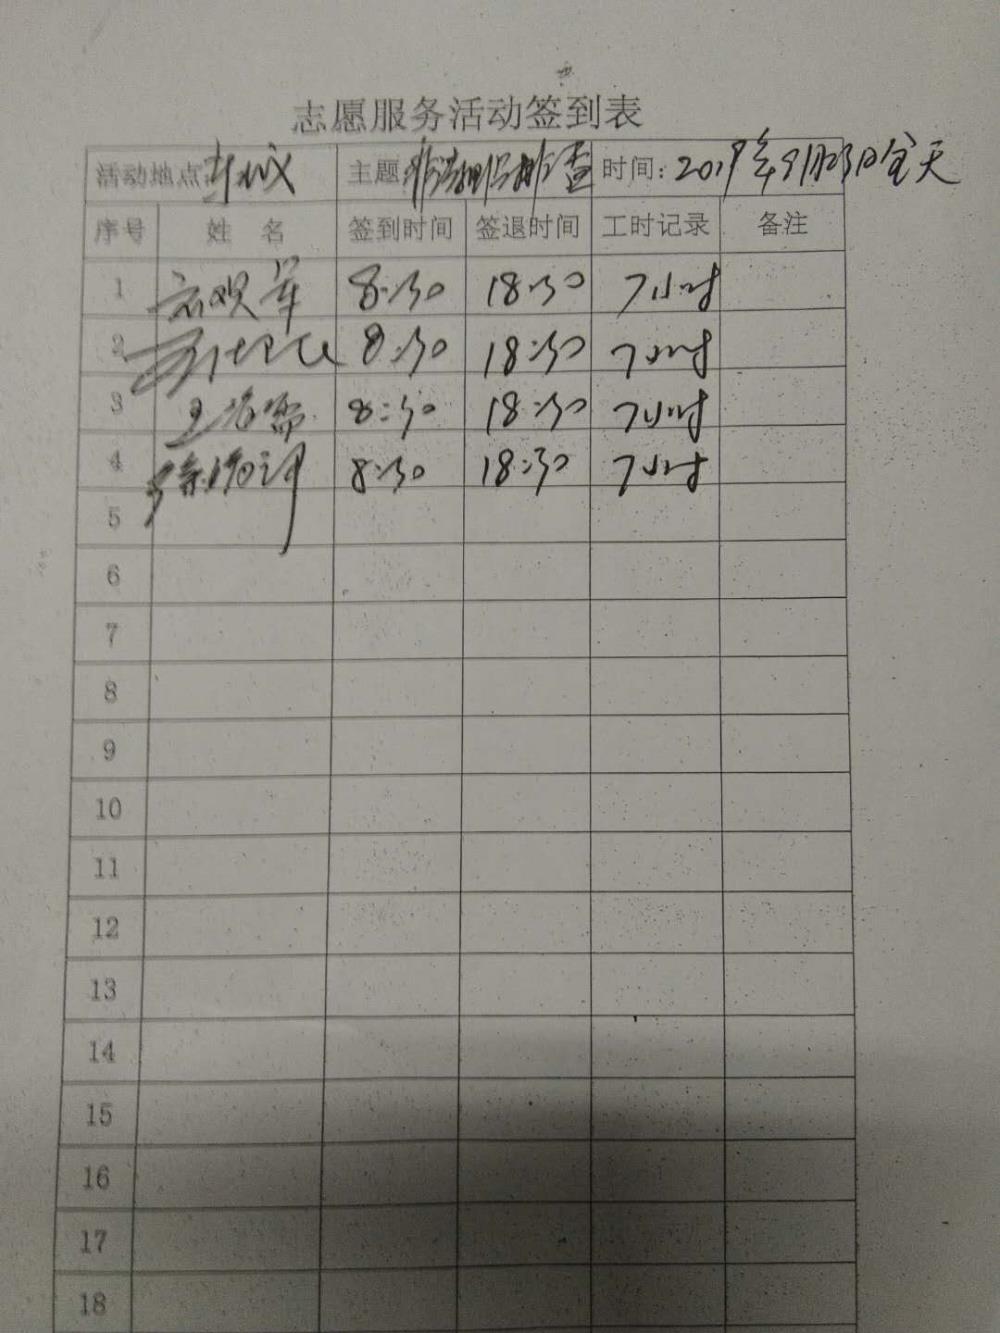 志愿服务活动签到表
活动地点: 主题: 排查 时间: 2019年9月23日全天
序号 姓 名 签到时间 签退时间 工时记录 备注
1 8:30 18:30 7小时
2 8:30 18:30 7小时
3 8:30 18:30 7小时
4 8:30 18:30 7小时
5
6
7
8
9
10
11
12
13
14
15
16
17
18